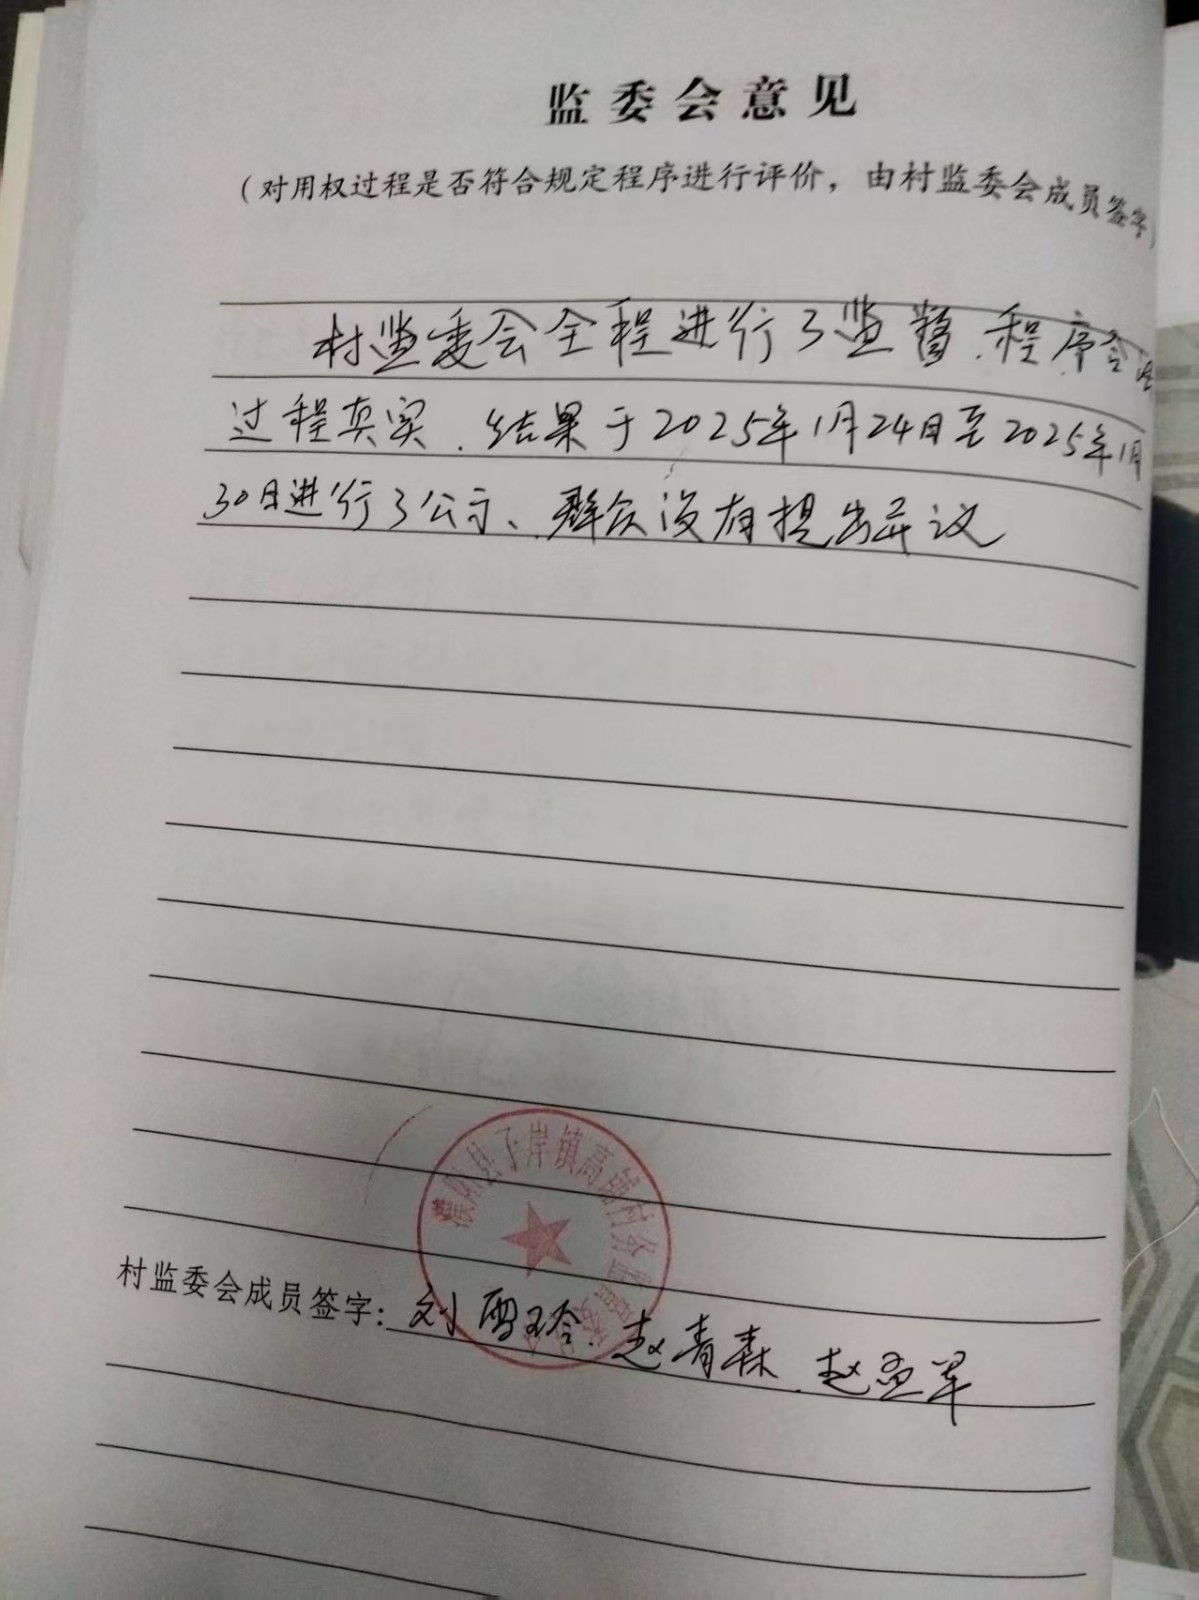 监委会意见
（对用权过程是否符合规定程序进行评价，由村监委会成员签字）
村监委会全程进行了监督.程序合法
过程真实.结果于2025年1月24日至2025年1月
30日进行了公示、群众没有提出异议
濮阳县子岸镇高铺村务监督委员会
村监委会成员签字：刘雪玲.赵青森.赵孟军